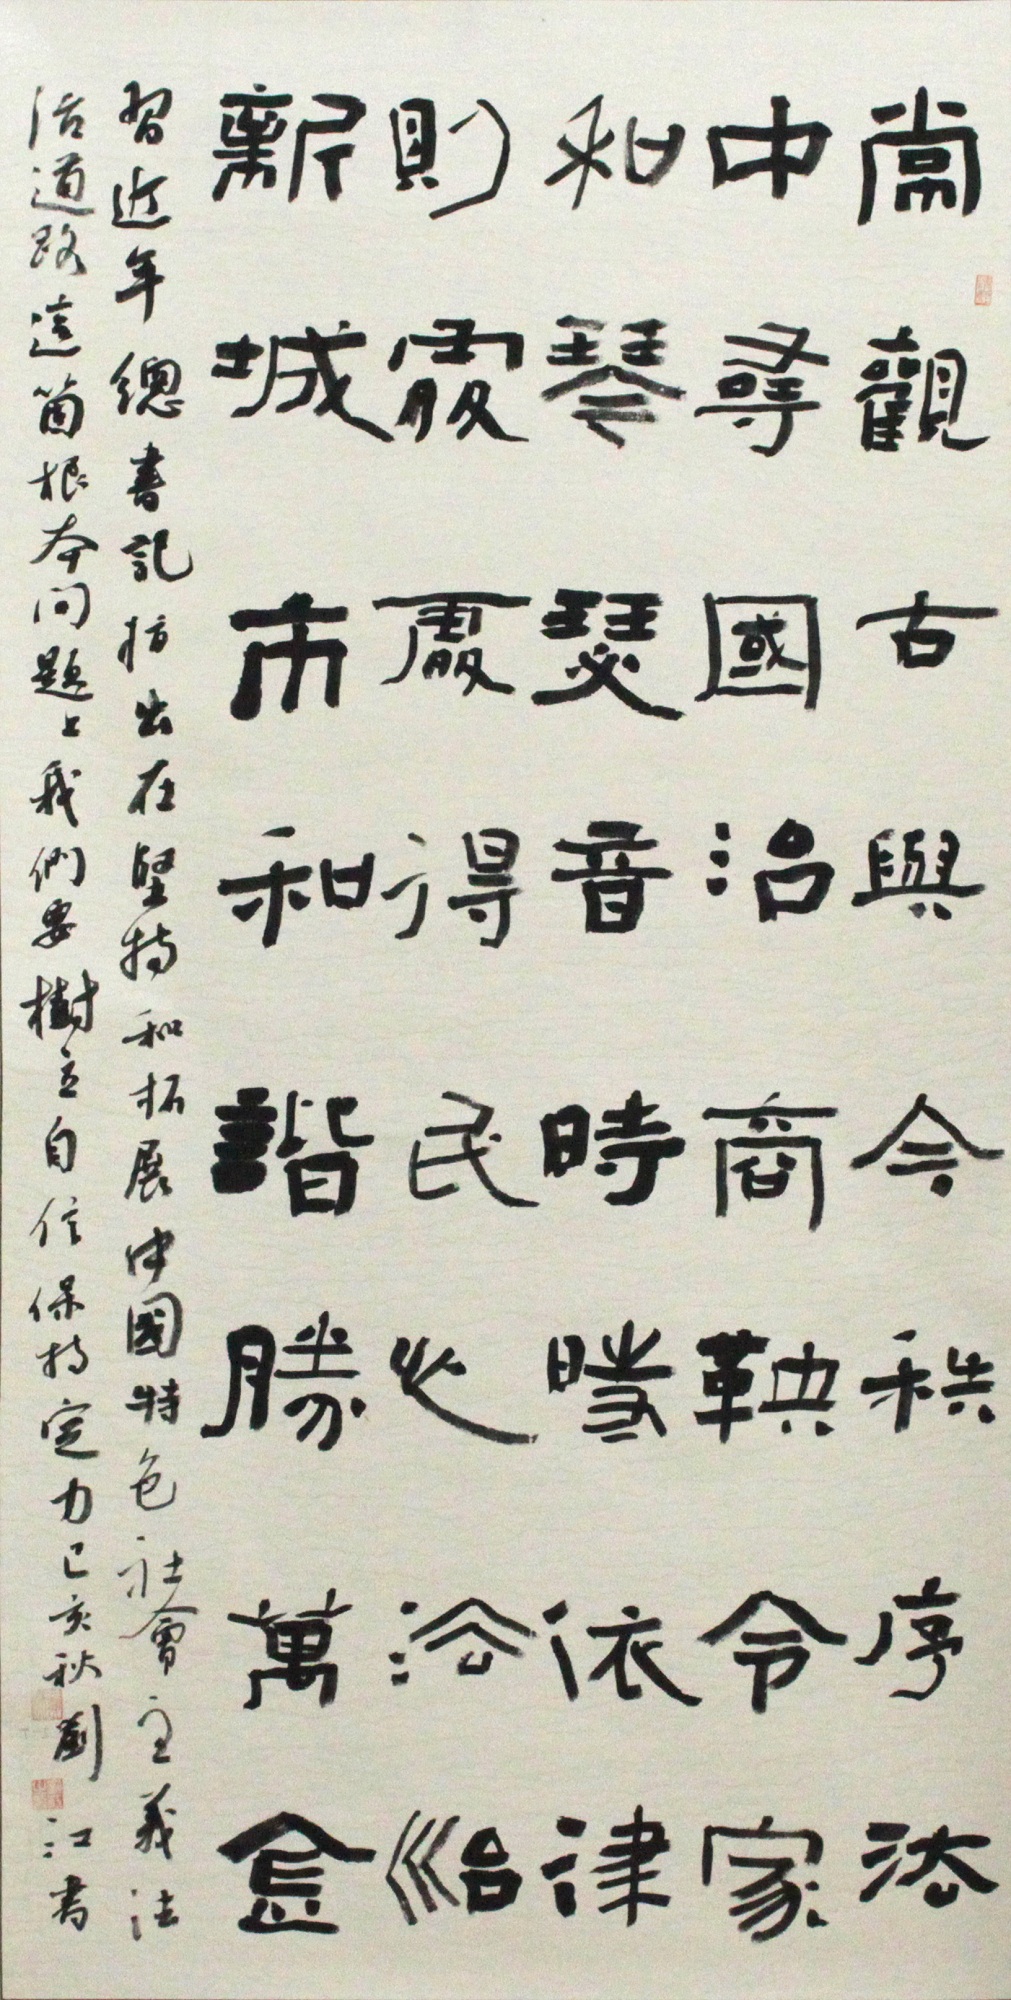 常觀古與今秩序法
中尋國治商鞅令家
和琴瑟音時時依律
則處處得民心法治
新城市和諧勝萬金
習近平總書記指出在堅持和拓展中國特色社會主義法
治道路這箇根本問題上我們要樹立自信保持定力己亥秋劉江書